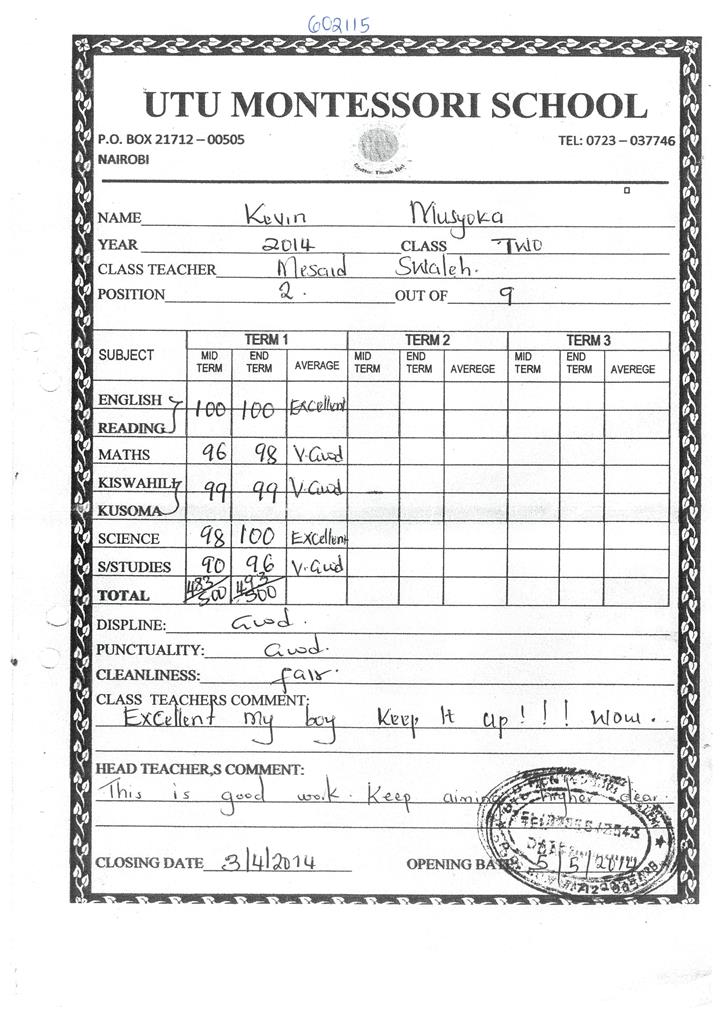 602115
UTU MONTESSORI SCHOOL
P.O. BOX 21712 – 00505 TEL: 0723 – 037746
NAIROBI
NAME Kevin Musyoka
YEAR 2014 CLASS TWO
CLASS TEACHER Mesaid Swaleh.
POSITION 2. OUT OF 9
SUBJECT TERM 1 TERM 2 TERM 3
MID TERM END TERM AVERAGE MID TERM END TERM AVEREGE MID TERM END TERM AVEREGE
ENGLISH READING 100 100 Excellent
MATHS 96 98 V.Good
KISWAHILI KUSOMA 99 99 V.Good
SCIENCE 98 100 Excellent
S/STUDIES 90 96 V.Good
TOTAL 483/500 493/500
DISPLINE: Good.
PUNCTUALITY: Good.
CLEANLINESS: fair.
CLASS TEACHERS COMMENT:
Excellent my boy Keep It up!!! Wow.
HEAD TEACHER,S COMMENT:
This is good work. Keep aiming higher dear.
CLOSING DATE 3/4/2014 OPENING DATE 5/5/2014